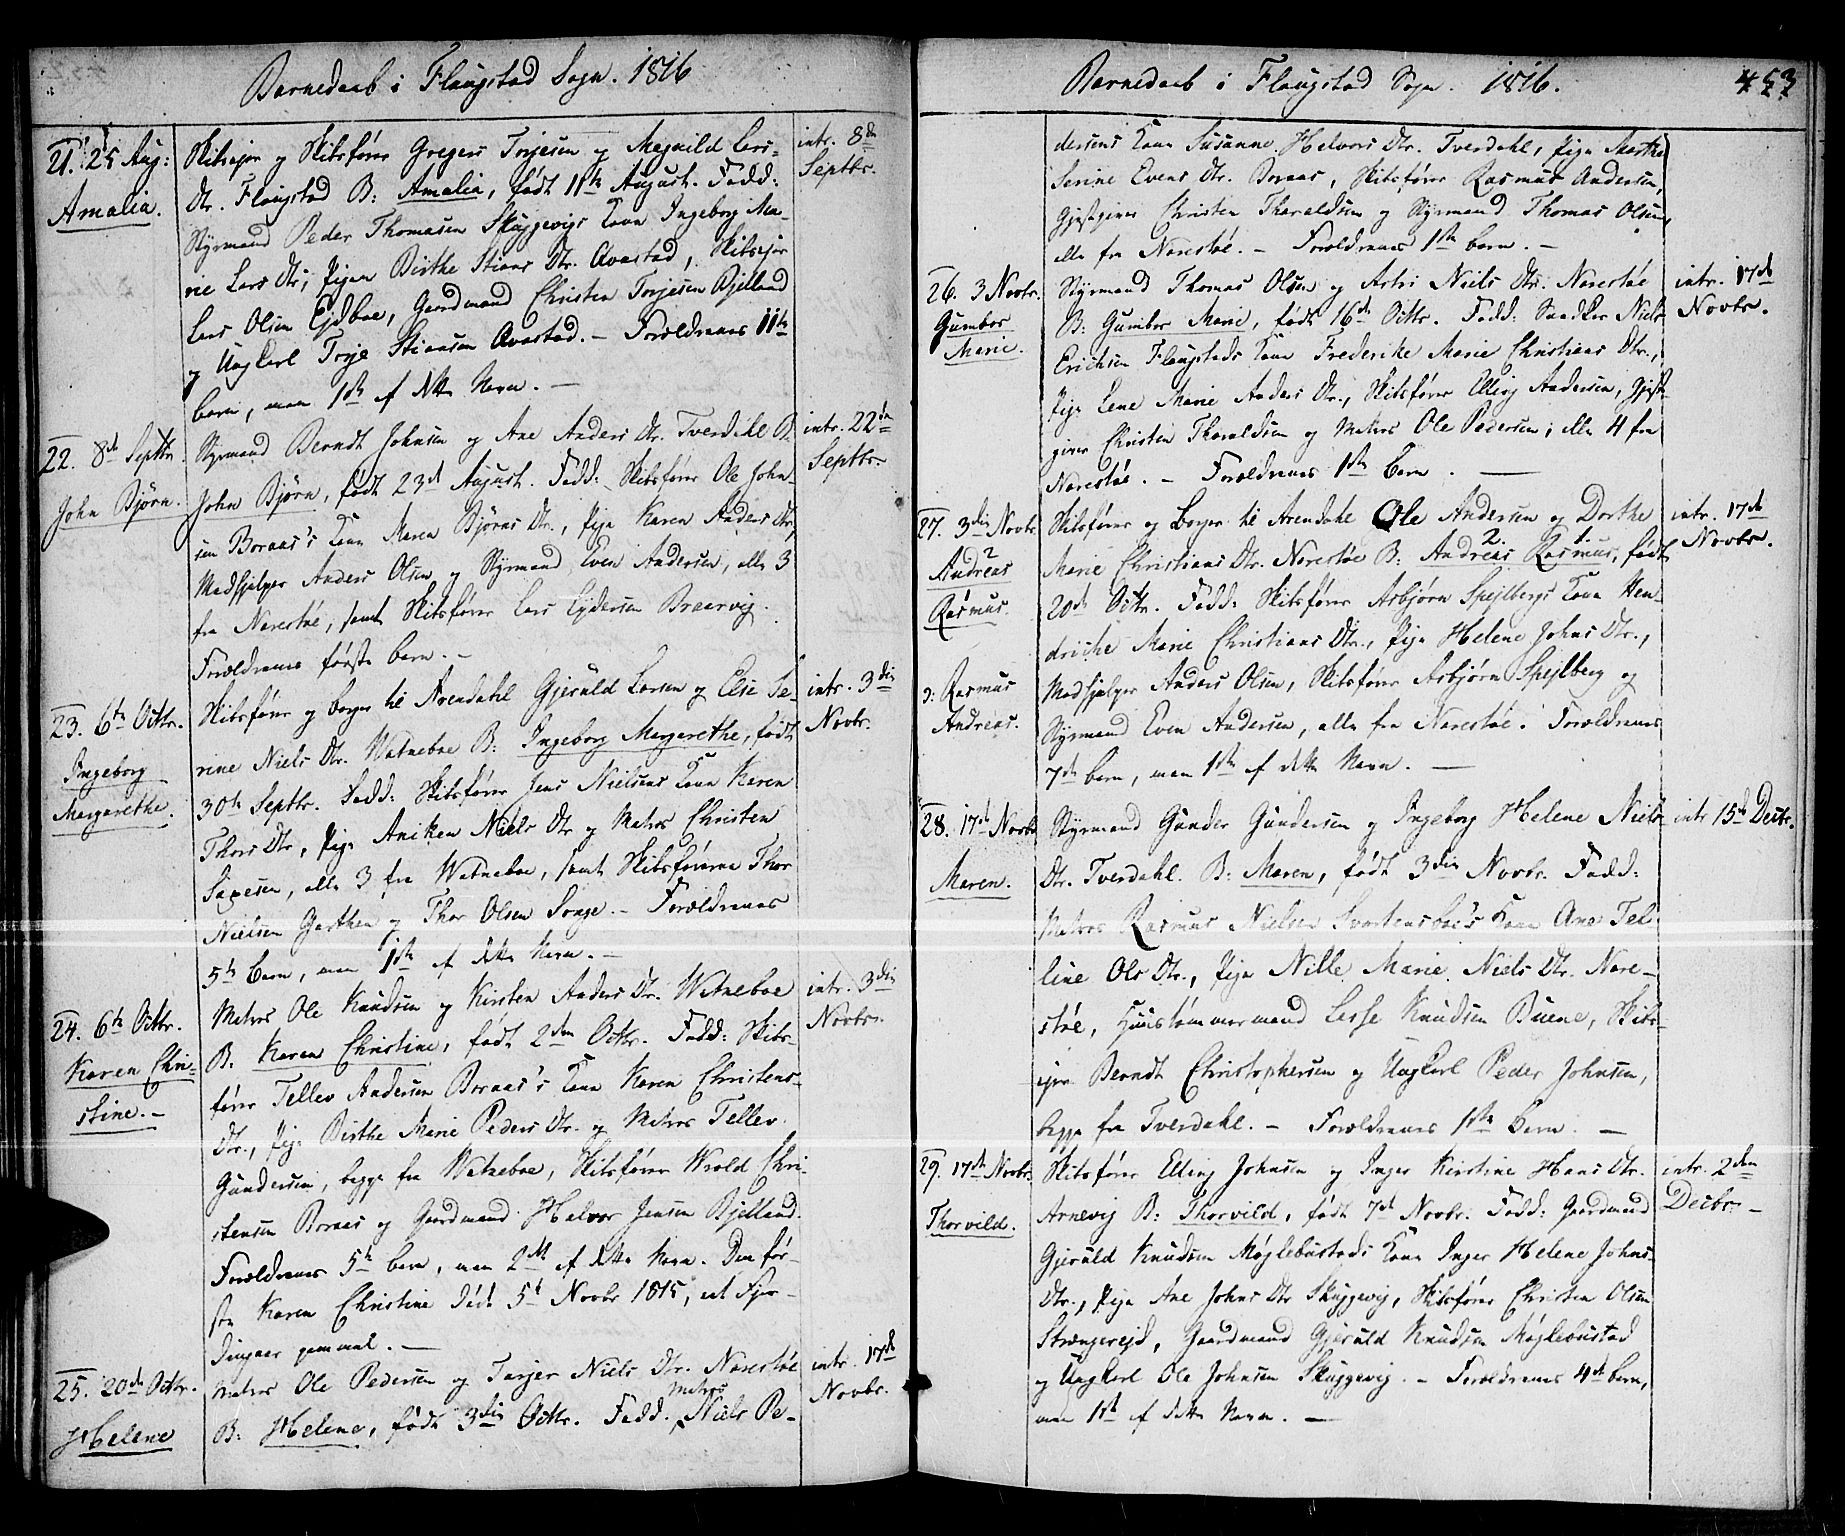 Barnedaab i Flaugstad Sogn. 1816
21. 25 Aug:
Amalia.
Skibsejer og Skibsfører Gregers Torjesen og Magnild Lars
Dtr. Flaugstad B: Amalia, født 11te August. Fadd:
Styrmand Peder Thomasen Skuggevigs Kone Ingeborg Ma-
rie Lars Dtr, Pigen Birthe Stians Dtr. Avastad, Skibsejer
Lars Olsen Ejdboe, Gaardmand Christen Torjesen Bjelland
og Ungkarl Torje Stiansen Avastad. – Forældrenes 11te
barn, men 1ste af dette Navn. –
intr. 8de
Septbr.
22. 8de Septbr.
John Bjørn.
Styrmand Berndt Johnsen og Ane Anders Dtr. Tverdahl B.
John Bjørn, født 23de August. Fadd: Skibsfører Ole John-
sen Boraas's Kone Maren Bjørns Dtr., Pige Karen Anders Dtr,
Medhjelper Anders Olsen og Styrmand Even Andersen, alle 3
fra Narestøe, samt Skibsfører Lars Ejdersen Braarvig.
Forældrenes første barn. –
intr. 22de
Septbr.
23. 6te Octbr.
Ingeborg
Margarethe.
Skibsfører og borger til Arendahl Gjeruld Larsen og Else Se-
rine Niels Dtr. Watneboe B: Ingeborg Margarethe, født
30te Septbr. Fadd: Skibsfører Jens Nielsens Kone Karen
Thors Dtr, Pige Aniken Niels Dtr og Matros Christen
Saxesen, alle 3 fra Watneboe, samt Skibsførerne Thor
Nielsen Garthen og Thor Olsen Songe. – Forældrenes
5te barn, men 1ste af dette Navn. –
intr. 3die
Novbr.
24. 6te Octbr.
Karen Chri-
stine. –
Matros Ole Knudsen og Kirsten Anders Dtr. Watneboe
B. Karen Christine, født 2den Octbr. Fadd: Skibs-
fører Tellev Andersen Boraas's Kone Karen Christens-
Dtr., Pige Birthe Marie Peders Dtr. og Matros Tellev
Gundersen, begge fra Watneboe, Skibsfører Wrold Chri-
stensen Boraas og Gaardmand Halvor Jensen Bjelland.
Forældrenes 5te barn, men 2det af dette Navn. Den før-
ste Karen Christine død 5te Novbr 1815, et Fjer-
dingaar gammel. –
intr. 3die
Novbr.
25. 20de Octbr.
Helene
Matros Ole Pedersen og Tarjer Niels Dtr. Narestøe
B: Helene, født 3die Octbr. Fadd. Matros Niels Pe-
intr. 17de
Novbr.
Barnedaab i Flaugstad Sogn. 1816.
453
dersens Kone Susanne Helvors Dtr. Tverdahl, Pige Marthe
Serine Evens Dtr. Boraas, Skibsfører Rasmus Andersen,
Gjestgiver Christen Tharaldsen og Styrmand Thomas Olsen,
alle fra Narestøe. – Forældrenes 1ste barn. –
26. 3 Novbr.
Gumbor
Marie.
Styrmand Thomas Olsen og Astri Niels Dtr. Narestøe
B: Gumbor Marie, født 16de Octbr. Fadd: Snedker Niels
Erichsen Flaugstads Kone Frederike Marie Christians Dtr.,
Pige Lene Marie Anders Dtr., Skibsfører Elling Andersen, Gjest-
giver Christen Tharaldsen og Matros Ole Pedersen, alle 4 fra
Narestøe. – Forældrenes 1ste barn. –
intr. 17de
Novbr.
27. 3die Novbr
Andreas 2
Rasmus.
ɔ: Rasmus
Andreas.
Skibsfører og borger til Arendahl Ole Andersen og Dorthe
Marie Christians Dtr. Narestøe B: Andreas 2 Rasmus 1, født
20de Octbr. Fadd: Skibsfører Asbjørn Spejlbergs Kone Hen-
driche Marie Christians Dtr., Pige Helene Johns Dtr.,
Medhjelper Anders Olsen, Skibsfører Asbjørn Spejlberg og
Styrmand Even Andersen, alle fra Narestøe. Forældrenes
7de barn, men 1ste af dette Navn. –
intr. 17de
Novbr.
28. 17de Novbr
Maren.
Styrmand Gunder Gundersen og Ingeborg Helene Niels-
Dtr. Tverdahl. B: Maren, født 3die Novbr. Fadd:
Matros Rasmus Nielsen Svartensboe's Kone Ane Tel-
line Ols Dtr., Pige Nille Marie Niels Dtr. Nare-
støe, Huustømmermand Lasse Knudsen Buene, Skibs-
ejer Berndt Christophersen og Ungkarl Peder Johnsen,
begge fra Tverdahl. – Forældrenes 1ste barn. –
intr 15de Decbr.
29. 17de Novbr.
Thorvild.
Skibsfører Elling Johnsen og Inger Kirstine Hans Dtr.
Arnevig B: Thorvild, født 7de Novbr. Fadd: Gaardmand
Gjeruld Knudsen Møglebustads Kone Inger Helene Johns
Dtr., Pige Ane Johns Dtr Skuggevig, Skibsfører Christen Olsen
Strængereid, Gaardmand Gjeruld Knudsen Møglebustad
og Ungkarl Ole Johnsen Skuggevig. – Forældrenes 4de barn,
men 1ste af dette Navn. –
intr. 2den
Decbr. –